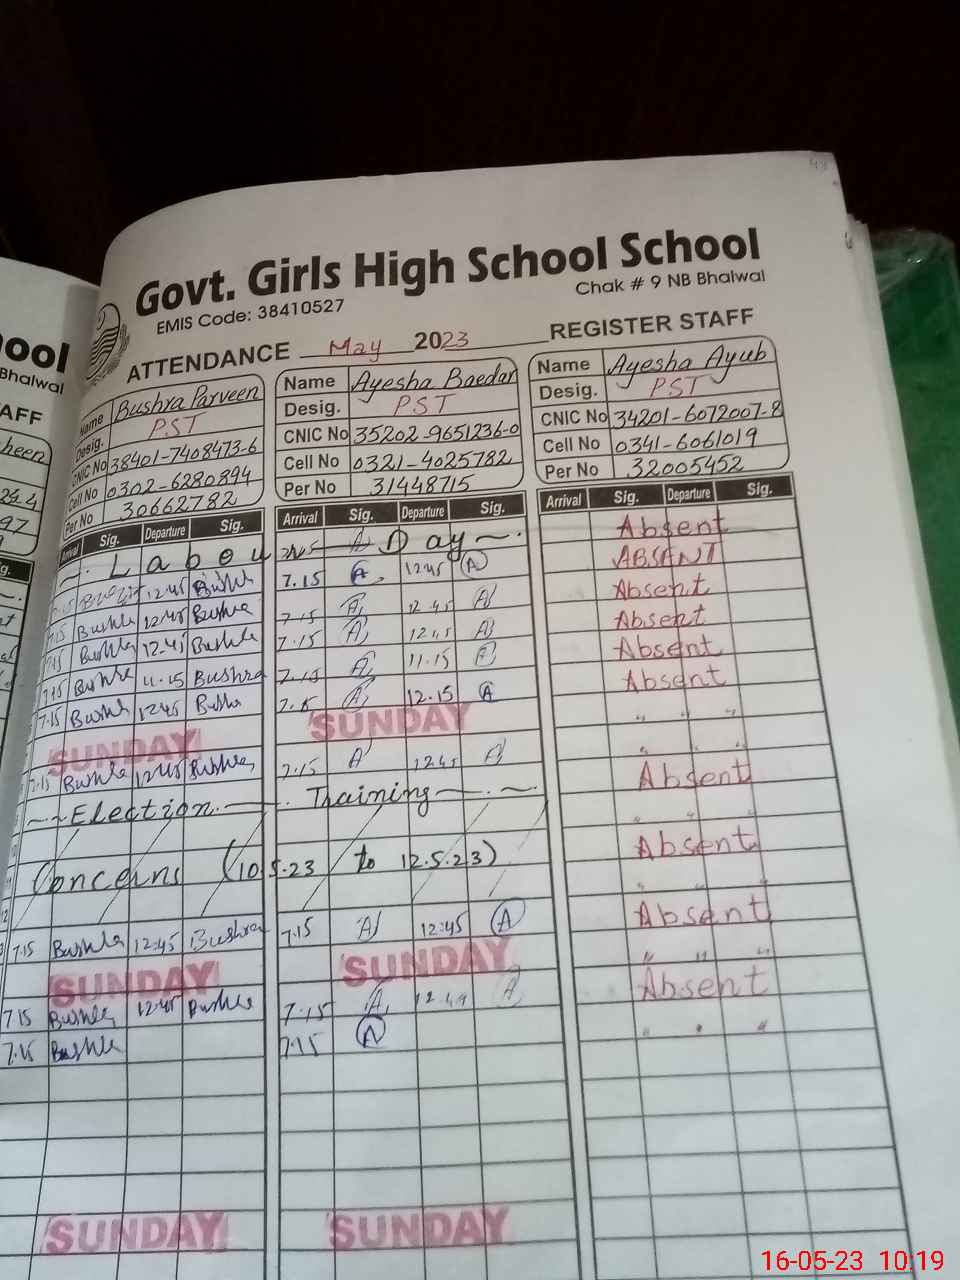 ool
Bhalwal
AFF
heen
Govt. Girls High School School
EMIS Code: 38410527
Chak # 9 NB Bhalwal
ATTENDANCE May 2023 REGISTER STAFF
Name Bushra Parveen
Desig. PST
CNIC No 38401-7408473-6
Cell No 0302-6280894
Per No 30662782
Arrival Sig. Departure Sig.
Name Ayesha Baedar
Desig. PST
CNIC No 35202-9651236-0
Cell No 0321-4025782
Per No 31448715
Arrival Sig. Departure Sig.
Name Ayesha Ayub
Desig. PST
CNIC No 34201-6072007-8
Cell No 0341-6061019
Per No 32005452
Arrival Sig. Departure Sig.
Labou Day
7.15 12.45 Bushra 7.15 A 12.45 A ABSENT
7.15 Bushra 12.45 Bushra 7.15 A 12.45 A Absent
7.15 Bushra 12.45 Bushra 7.15 A 12.45 A Absent
7.15 Bushra 11.15 Bushra 7.15 A 11.15 Absent
7.15 Bushra 12.45 Bushra 7.15 A 12.15 A Absent
SUNDAY SUNDAY
7.15 Bushra 12.45 Bushra 7.15 A 12.45 A
Absent
Election Training
Concerns (10.5.23 to 12.5.23)
Absent
7.15 Bushra 12:45 Bushra 7.15 A 12:45 A
Absent
SUNDAY SUNDAY
7.15 Bushra 12.45 Bushra 7.15 A 12.49 A
Absent
7.15 Bushra 7.15 A
SUNDAY SUNDAY
16-05-23 10:19